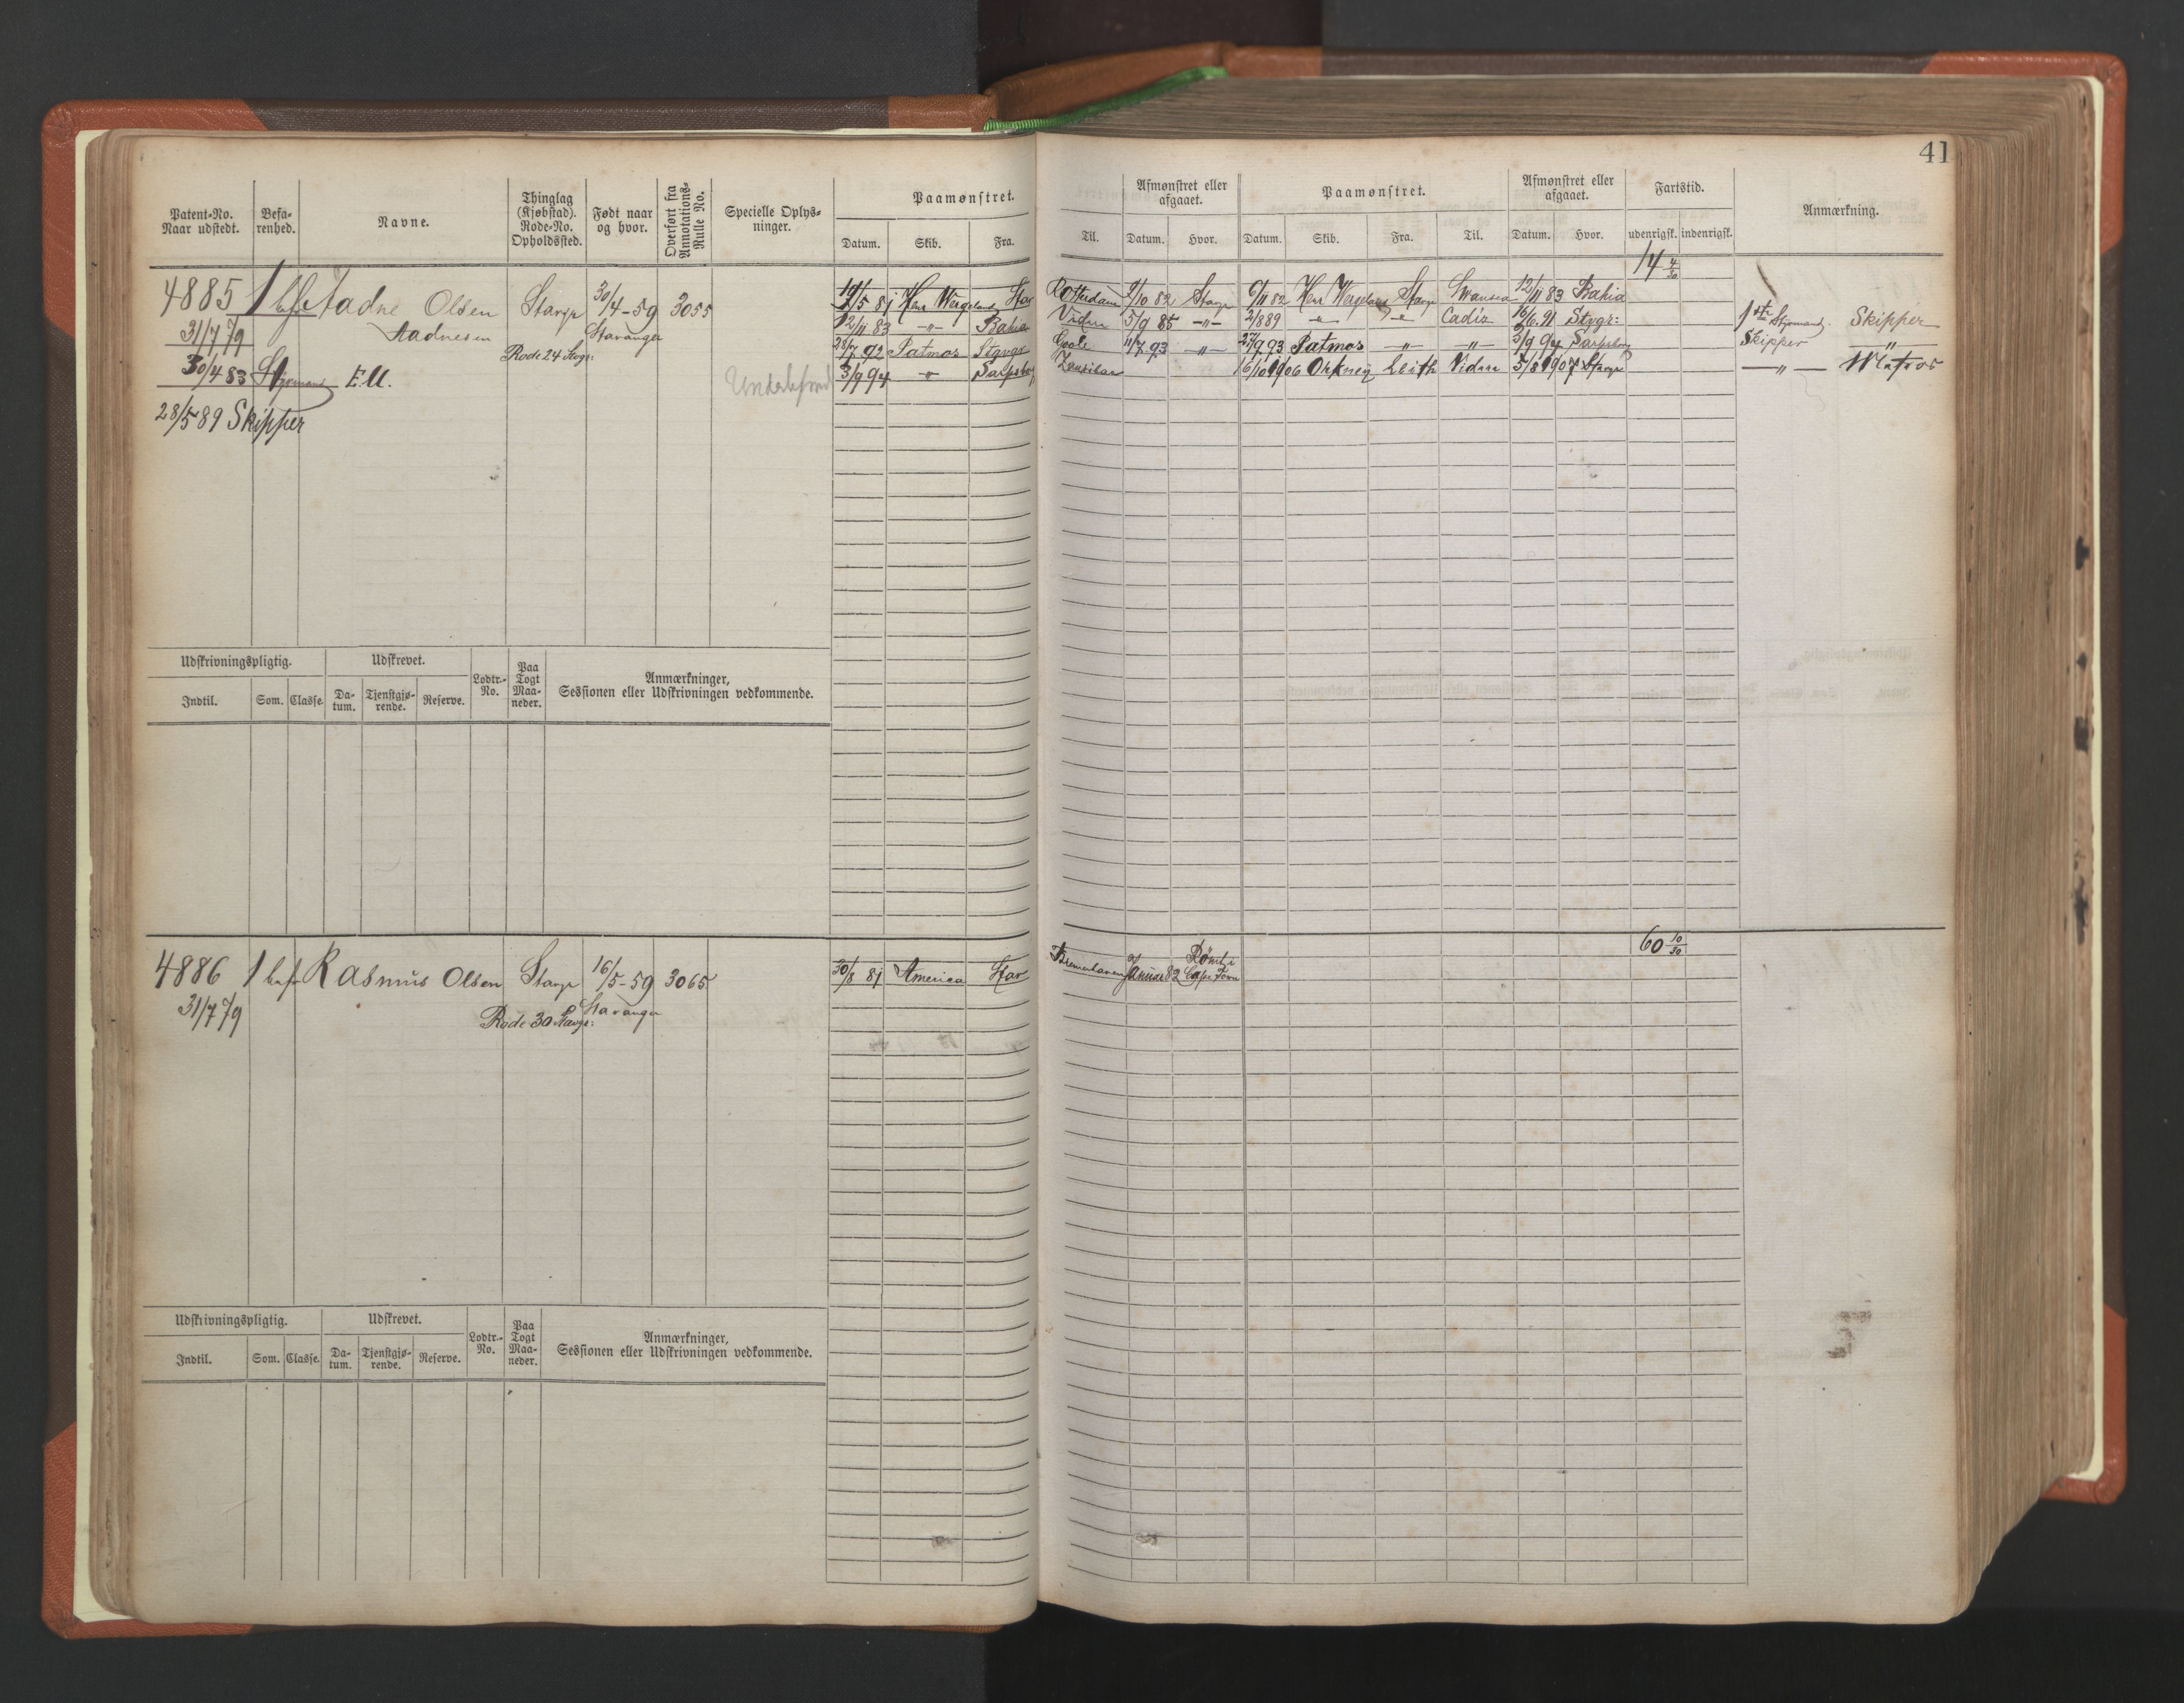 41
Patent-No. Naar udstedt. Befa-renhed. Navne. Thinglag (Kjøbstad). Rode-No. Opholdssted. Født naar og hvor. Overført fra Annotations-Rulle No. Specielle Oplys-ninger. Paamønstret. Datum. Skib. Fra.
Til. Afmønstret eller afgaaet. Datum. Hvor. Paamønstret. Datum. Skib. Fra. Til. Afmønstret eller afgaaet. Datum. Hvor. Fartstid. udenrigsk. indenrigsk. Anmærkning.
14 4/30
4885 1 bef Aadne Olsen Stavgr 30/4-59 3055 19/5 81 Henr Wergeland Stav
Rotterdam 9/10 82 Stavgr 6/11 82 Henr Wergeland Stavgr Swansea 12/11 83 Bahia
31/7 79 Aadnesen Stavanger 12/11 83 -"- Bahia
Vidre 5/9 85 -"- 2/889 " " Cadiz 16/6.91 Stvgr: 1ste Styrmand. Skipper
Rode 24 Stvgr: 28/7 92 Patmos Stgvgr
Goole 11/7 93 -"- 27/9 93 Patmos -"- -"- 3/9 94 Sarpsborg Skipper "
30/4 83 Styrmand E.U. 3/9 94 " Sarpsborg
16/10 1906 Orkney Leith Vidre 3/8 1907 Stavgr -"- Matros
28/5 89 Skipper
Udskrivningspligtig. Udskrevet. Lodtr.-No. Paa Togt Maa-neder. Anmærkninger, Sessionen eller Udskrivningen vedkommende.
Indtil. Som. Classe. Da-tum. Tjenstgjø-rende. Reserve.
60 10/30
4886 1 bef Rasmus Olsen Stavgr 16/5-59 3065 30/8 81 America Stav
Bremerhaven Januar 82 Rømt i Cape Town
31/7 79 Rode 30 Stavgr: Stavanger
Udskrivningspligtig. Udskrevet. Lodtr.-No. Paa Togt Maa-neder. Anmærkninger, Sessionen eller Udskrivningen vedkommende.
Indtil. Som. Classe. Da-tum. Tjenstgjø-rende. Reserve.